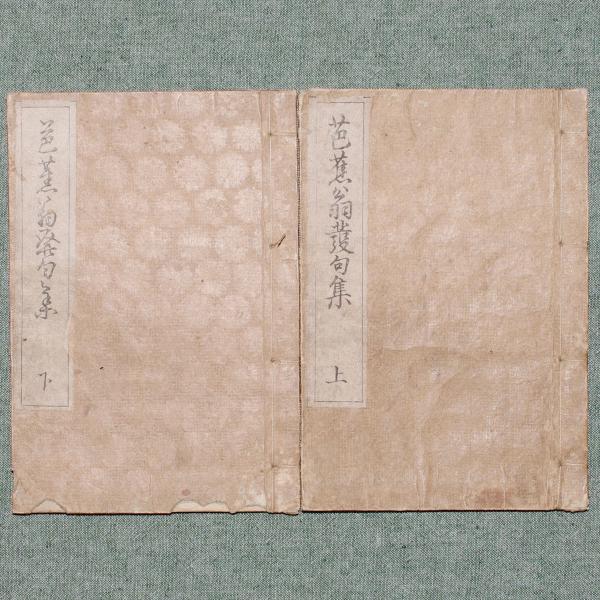 芭蕉翁發句集
上
芭蕉翁発句集
下